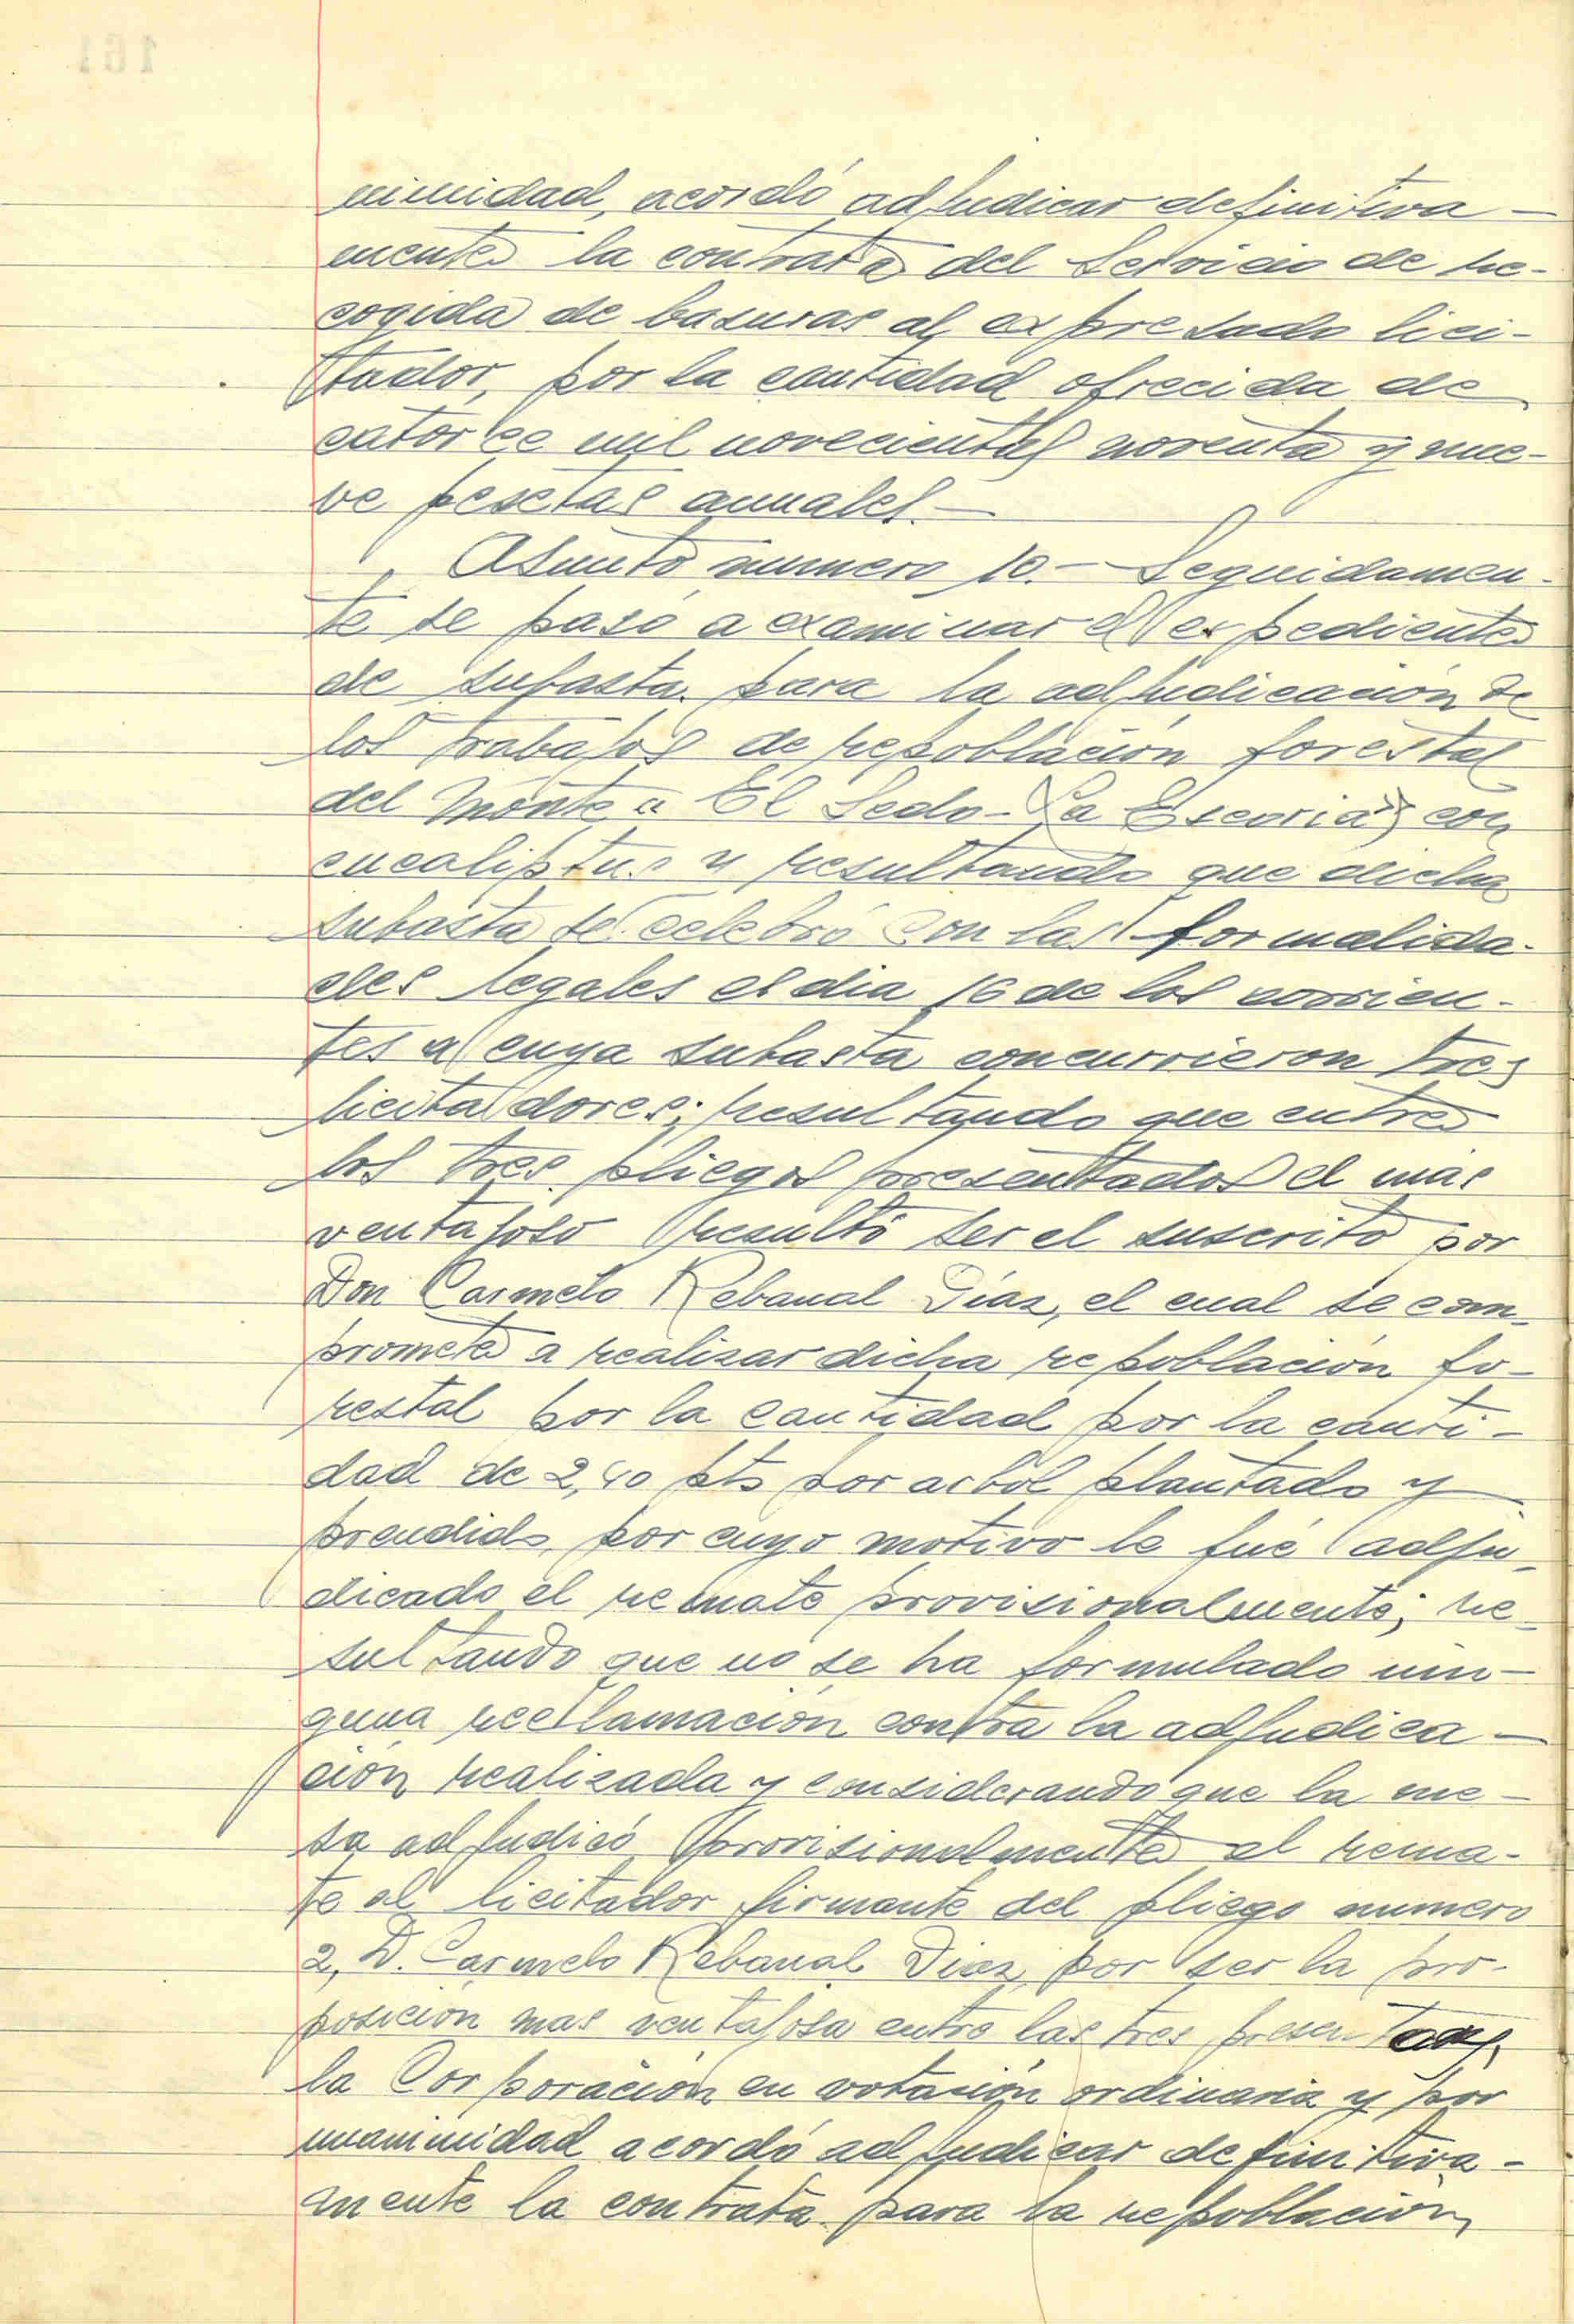 161
nimidad, acordó adjudicar definitiva-
mente la contrata del Servicio de re-
cogida de basuras al expresado lici-
tador, por la cantidad ofrecida de
catorce mil novecientas noventa y nue-
ve pesetas anuales.-
Asunto numero 10.- Seguidamen-
te se pasó a examinar el expediente
de subasta para la adjudicación de
los trabajos de repoblación forestal
del Monte "El Sedo-La Escoria" con
eucaliptus y resultando que dicha
subasta se celebró con las formalida-
des legales el dia 16 de los corrien-
tes a cuya subasta concurrieron tres
licitadores; resultando que entre
los tres pliegos presentados el mas
ventajoso resultó ser el suscrito por
Don Carmelo Rebanal Díaz, el cual se com-
promete a realizar dicha repoblación fo-
restal por la cantidad por la canti-
dad de 2,40 pts por arbol plantado y
prendido, por cuyo motivo le fué adju-
dicado el remate provisionalmente; re-
sultando que no se ha formulado nin-
guna reclamación contra la adjudica-
ción realizada y considerando que la me-
sa adjudicó provisionalmente el rema-
te al licitador firmante del pliego numero
2, D. Carmelo Rebanal Diaz, por ser la pro-
posición mas ventajosa entre las tres presentadas,
la Corporación en votación ordinaria y por
unanimidad acordó adjudicar definitiva-
mente la contrata para la repoblación